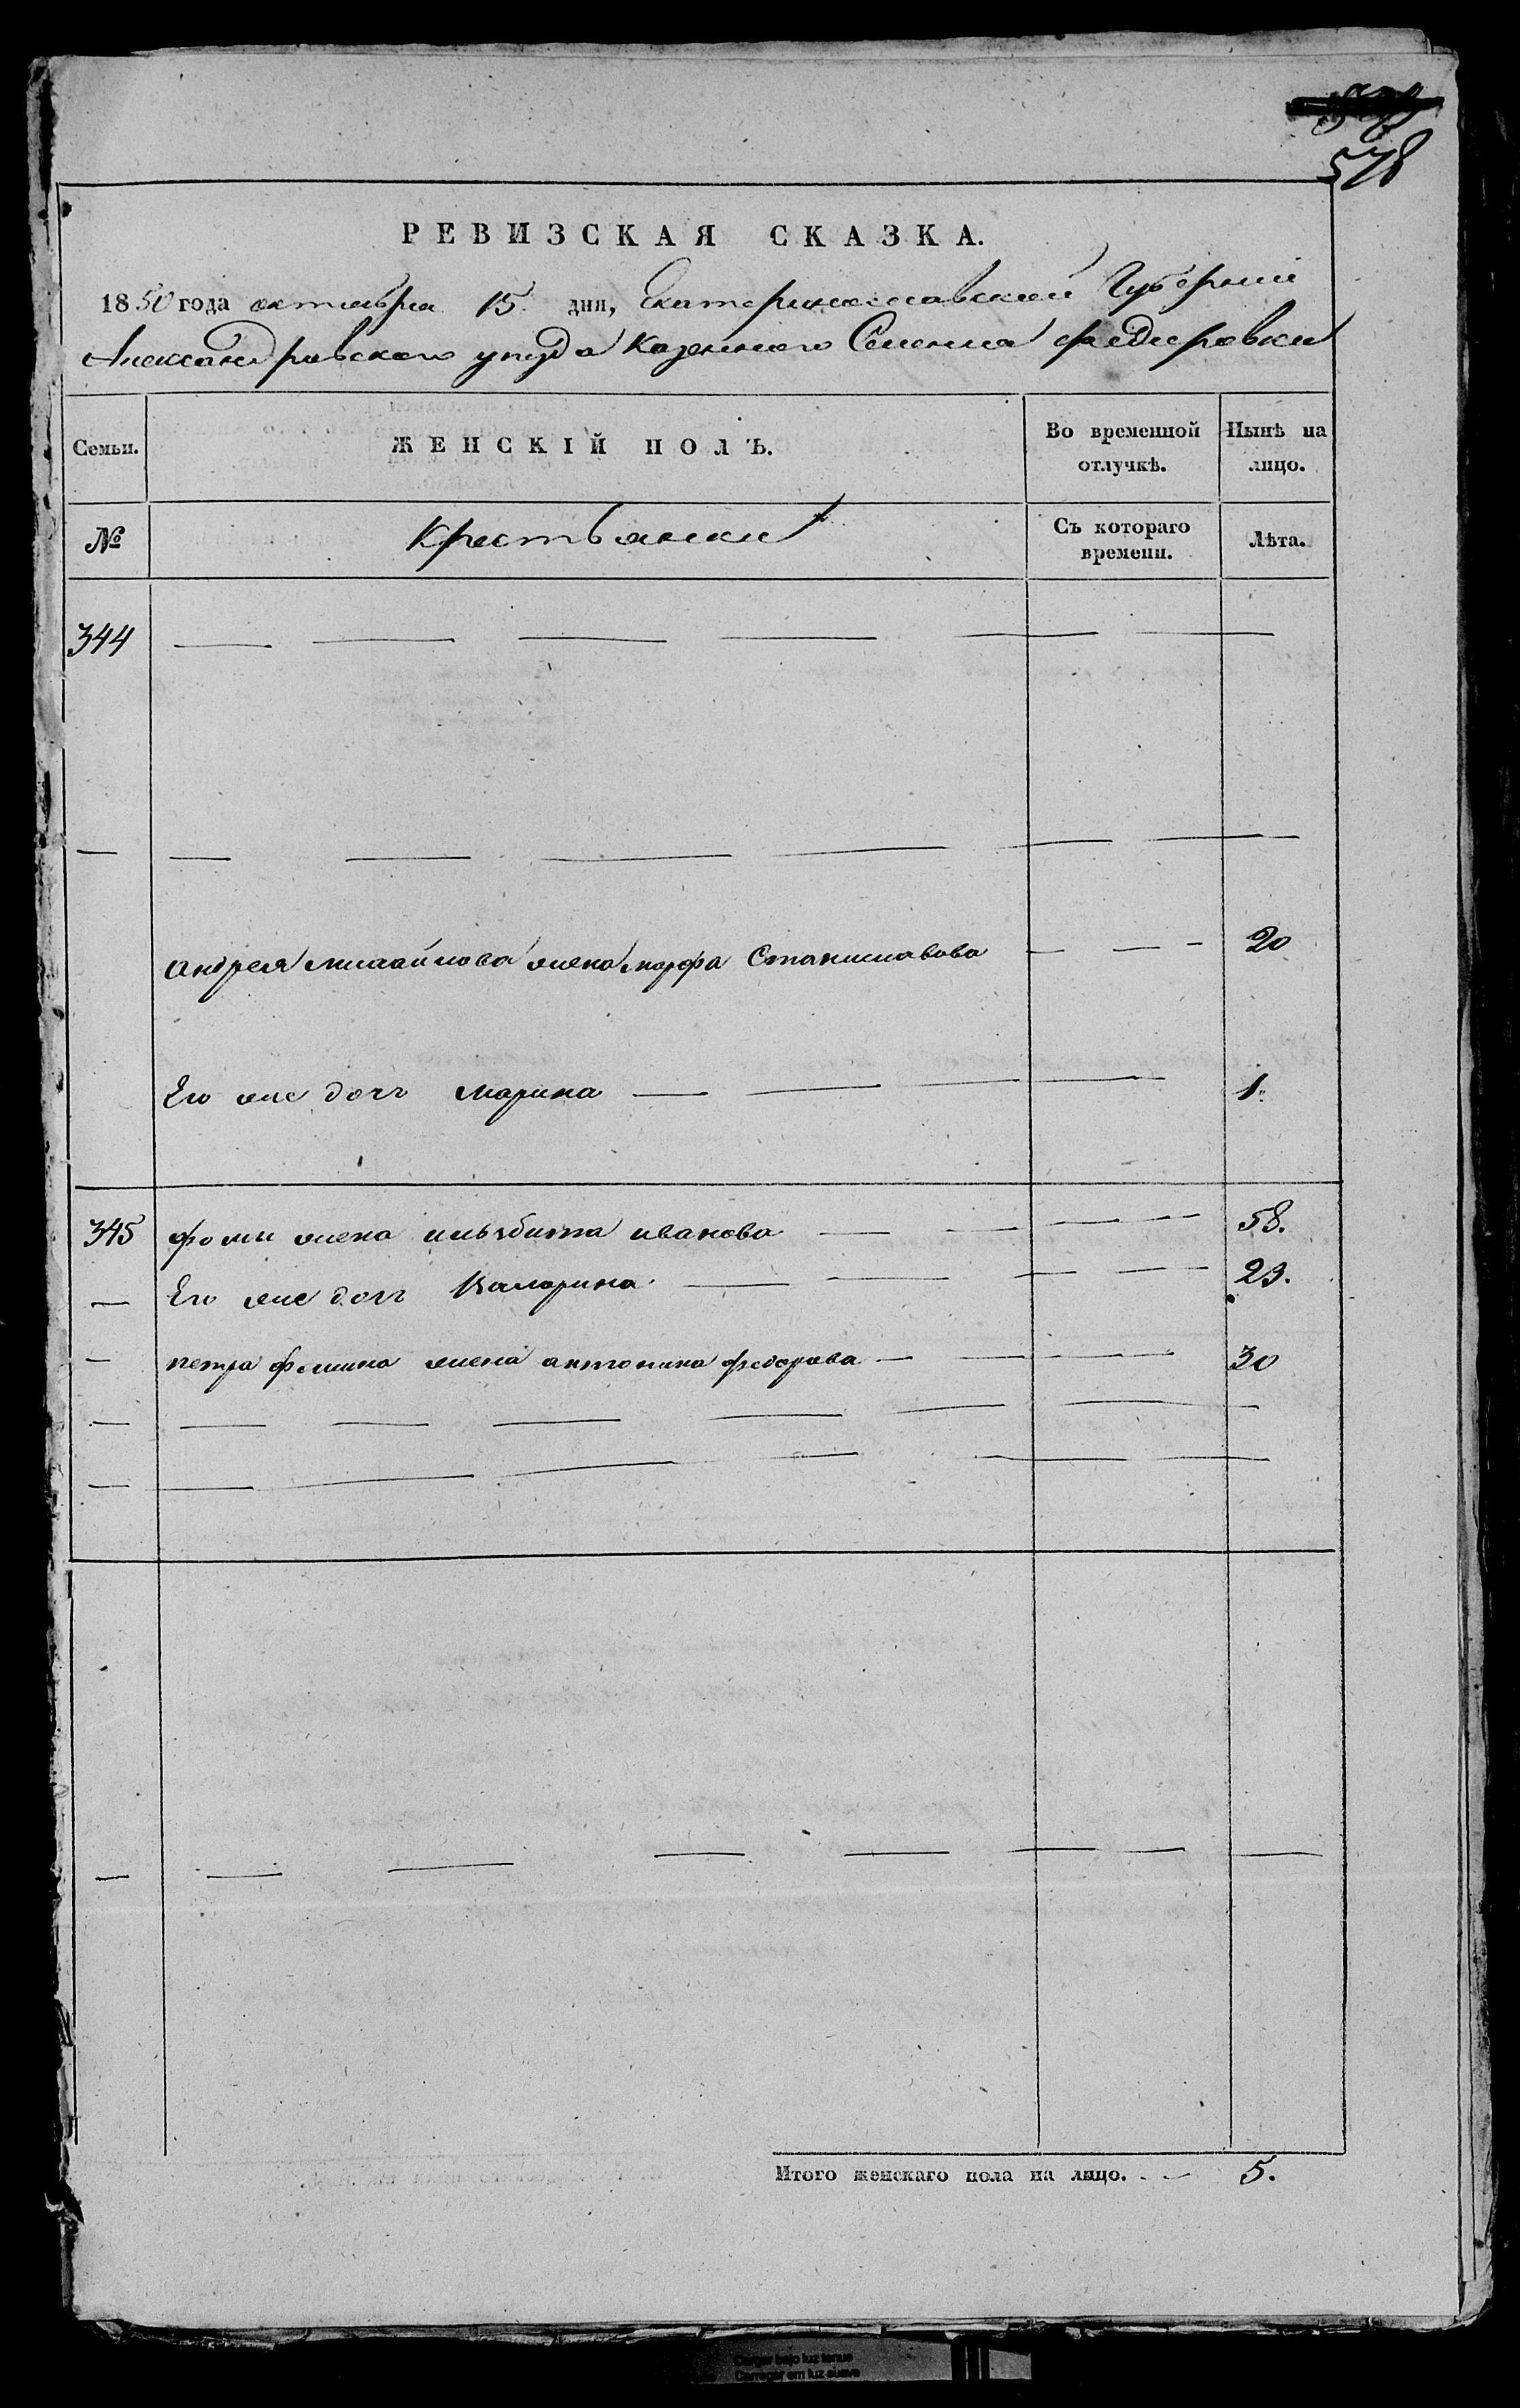 578
РЕВИЗСКАЯ СКАЗКА.
1850 года октября 15. дня, Екатеринославской Губернии
Александровского уезда Казенного Селения Федоровки
Семьи. ЖЕНСКІЙ ПОЛЪ. Во временной отлучкѣ. Нынѣ на лицо.
№ Крестьянки Съ котораго времени. Лѣта.
344
Андрея Михайлова жена марфа Станиславова 20
Его же дочь марина 1.
345 фомы жена ивановa 58.
Его же дочь 23.
петра фомина жена антонина федорова 30
Итого женскаго пола на лицо. 5.